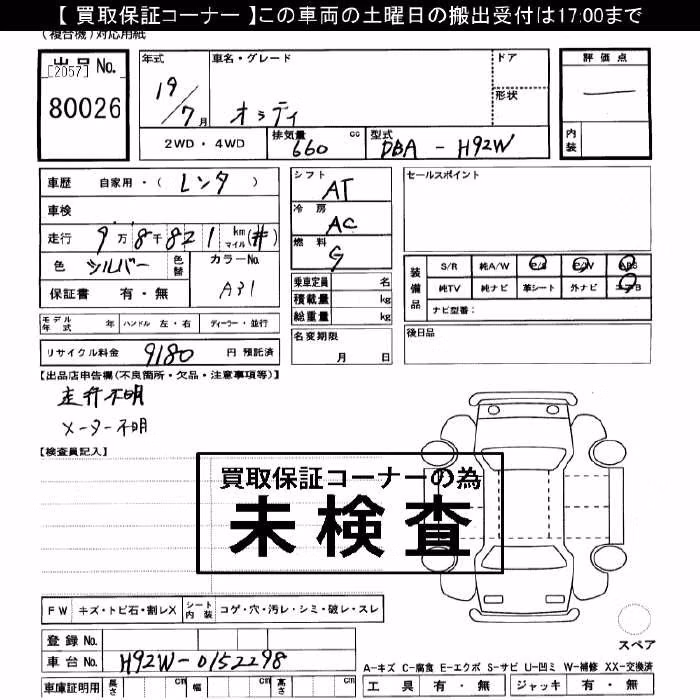 【 買取保証コーナー 】この車両の土曜日の搬出受付は17:00まで
(複合機)対応用紙
出品No.
[2057]
80026
年式
19/7月
車名・グレード
オッティ
ドア
形状
評価点
—
内装
2WD・4WD
排気量 660 cc
型式 DBA - H92W
車歴 自家用・(レンタ)
車検
走行 9万8千821 km マイル (#)
色 シルバー 色替 カラーNo. A31
保証書 有・無
シフト AT
冷房 AC
燃料 G
乗車定員 名
積載量 kg
総重量 kg
セールスポイント
装備品
S/R 純A/W P/S P/W ABS
純TV 純ナビ 革シート 外ナビ エアB
ナビ型番:
モデル年式 年 ハンドル 左・右 ディーラー・並行
名変期限 月 日
後日品
リサイクル料金 9180 円 預託済
【出品店申告欄(不良箇所・欠品・注意事項等)】
走行不明
メーター不明
【検査員記入】
買取保証コーナーの為
未検査
FW キズ・トビ石・割レX シート内装 コゲ・穴・汚レ・シミ・破レ・スレ
登録No.
車台No. H92W-0152298
車庫証明用 長さ cm 幅 cm 高さ cm
スペア
A-キズ C-腐食 E-エクボ S-サビ U-凹ミ W-補修 XX-交換済
工具 有・無 ジャッキ 有・無